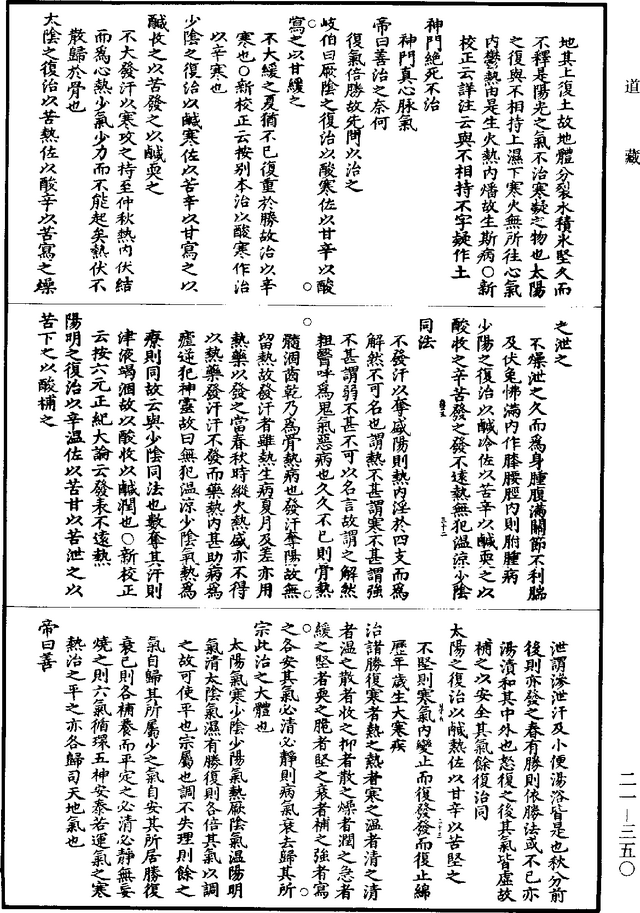 道藏
地其上復土故地體分裂水積氷堅久而
不釋是陽光之氣不治寒凝之物也太陽
之復與不相持上濕下寒火無所往心氣
内鬱熱由是生火熱内燔故生斯病○新
校正云詳注云與不相持不字疑作土
神門絶死不治
神門真心脉氣
帝曰善治之奈何
復氣倍勝故先問以治之
岐伯曰厥陰之復治以酸寒佐以甘辛以酸
寫之以甘緩之
不大緩之夏猶不已復重於勝故治以辛
寒也○新校正云按别本治以酸寒作治
以辛寒也
少陰之復治以鹹寒佐以苦辛以甘寫之以
鹹收之以苦發之以鹹耎之
不大發汗以寒攻之持至仲秋熱内伏結
而爲心熱少氣少力而不能起矣熱伏不
散歸於骨也
太陰之復治以苦熱佐以酸辛以苦寫之燥
之泄之
不燥泄之久而爲身腫腹滿關節不利腨
及伏兔怫滿内作膝腰脛内則胕腫病
少陽之復治以鹹冷佐以苦辛以鹹耎之以
酸收之辛苦發之發不遠熱無犯温涼少陰
同法
不發汗以奪盛陽則熱内淫於四支而爲
解㑊不可名也謂熱不甚謂寒不甚謂強
不甚謂弱不甚不可以名言故謂之解㑊
粗醫呼爲鬼氣惡病也久久不已則骨熱
髓涸齒乾乃爲骨熱病也發汗奪陽故無
留熱故發汗者雖熱生病夏月及差亦用
熱藥以發之當春秋時縱火熱盛亦不得
以熱藥發汗汗不發而藥熱内甚助病爲
瘧逆犯神靈故曰無犯温涼少陰氣熱爲
療則同故云與少陰同法也數奪其汗則
津液竭涸故以酸收以鹹潤也○新校正
云按六元正紀大論云發表不遠熱
陽明之復治以辛温佐以苦甘以苦泄之以
苦下之以酸補之
泄謂滲泄汗及小便湯浴皆是也秋分前
後則亦發之春有勝則依勝法或不已亦
湯漬和其中外也怒復之後其氣皆虛故
補之以安全其氣餘復治同
太陽之復治以鹹熱佐以甘辛以苦堅之
不堅則寒氣内變止而復發發而復止綿
歷年歲生大寒疾
治諸勝復寒者熱之熱者寒之温者清之清
者温之散者收之抑者散之燥者潤之急者
緩之堅者耎之脆者堅之衰者補之強者寫
之各安其氣必清必靜則病氣衰去歸其所
宗此治之大體也
太陽氣寒少陰少陽氣熱厥陰氣温陽明
氣清太陰氣濕有勝復則各倍其氣以調
之故可使平也宗屬也調不失理則餘之
氣自歸其所屬少之氣自安其所居勝復
衰已則各補養而平定之必清必靜無妄
撓之則六氣循環五神安泰若運氣之寒
熱治之平之亦各歸司天地氣也
帝曰善
二一—三五〇